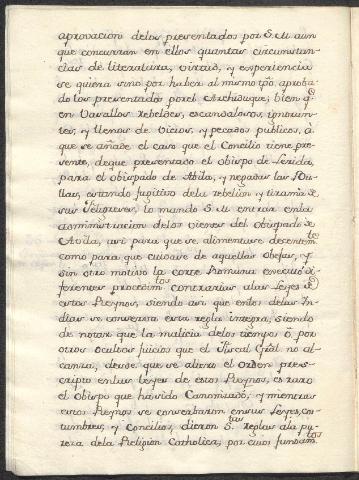 aprovacion delos presentados por S. M. aun
que concurran en ellos quantas circunstan-
cias de literatura, virtud, y experiencia
se quiera sino por haber al mismo tpõ. aproba
dolos presentados por el Archiduque, bien q̃
en Vasallos rebeldes, escandalosos, ignoran-
tes, y llenos de vicios, y pecados publicos, à
que se añade el caso que el Concilio tiene pre-
sente, deque presentado el obispo de Lerida,
para el obispado de Abila, y negadas las Bu-
llas, estando fugitivo dela rebelion, y tirania de
sus feligreses, lo mando S. M. entrar enla
administracion delos vienes del obispado de
Avila, asi para que se alimentase decentem.te
como para que cuidase de aquellas obejas, y
sin otro motivo la corte Romana executò di-
ferentes procedim.tos contrarios alas Leyes de
estos Reynos, siendo asi que enlos delas In-
dias se conserva esta regla integra, siendo
de notar que la malicia delos tiempos ò por
otros ocultos juicios que el Fiscal Gral no al-
canza, desde que se alterò el orden pres-
cripto enlas leyes de estos Reynos, es raro
el obispo que ha sido Canonizado, y mientras
estos Reynos se conservaron en sus Leyes, cos-
tumbres, y Concilios, dieron S.tas reglas ala pu-
reza dela Religion Catholica, por cuios fundam.tos